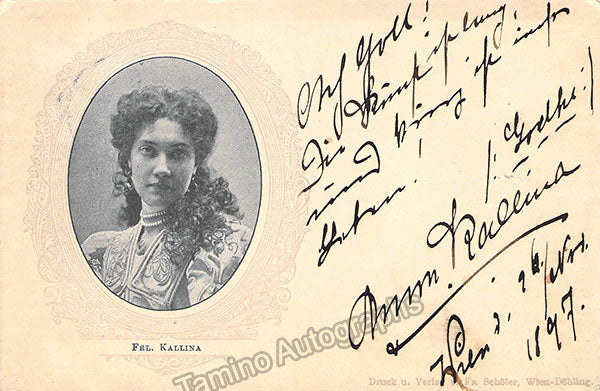 Ach Gott!
Die Kunst ist lang
und kurz ist unser
Leben!
/: Goethe :/
Anna Kallina
Wien d. 26/Nov.
1897.
FRL. KALLINA
Tamino Autographs
Druck u. Verlag v. Schöler, Wien-Döbling.